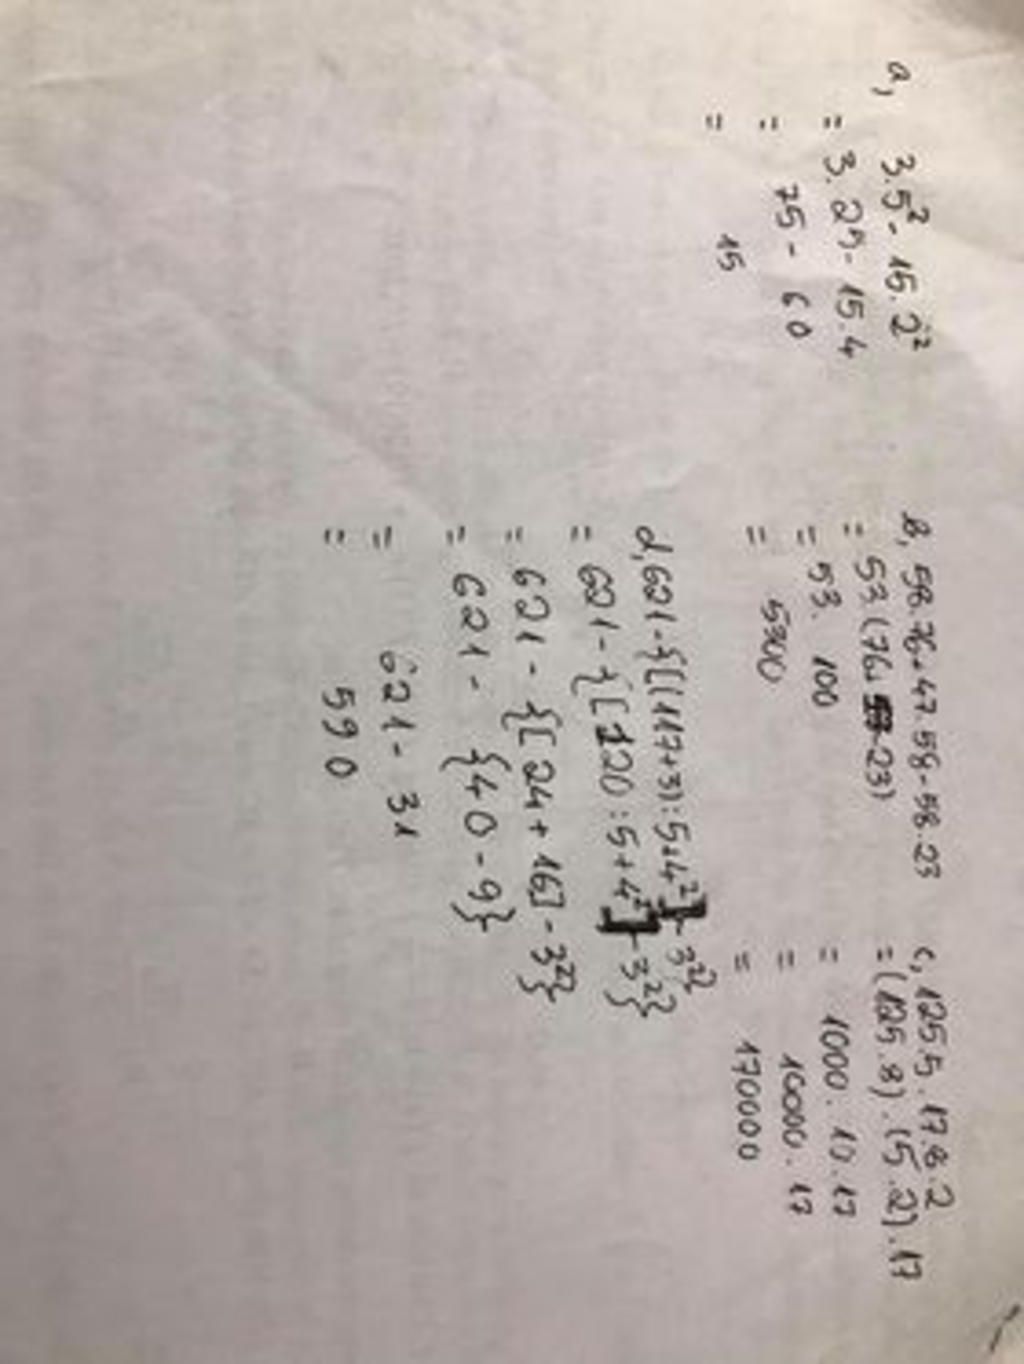 a, 3.5² - 15.2²
= 3.25 - 15.4
= 75 - 60
= 15
b, 58.76+47.58-58.23
= 53.(76+ -23)
= 53. 100
= 5300
c, 125.5.17.8.2
= (125.8).(5.2).17
= 1000.10.17
= 10000.17
= 170000
d, 621-{[(117+3):5+4²]-3²}
= 621-{[120:5+4²]-3²}
= 621-{[24+16]-3²}
= 621- {40-9}
= 621- 31
= 590